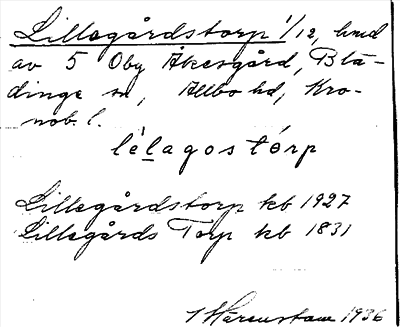 Lillegårdstorp 1/12, hmd
av 5 Oby Åkesgård, Blä-
dinge sn, Allbo hd, Kro-
nob. l.
lèlagostórp
Lillegårdstorp kb 1927
Lillegårds Torp kb 1831
1936